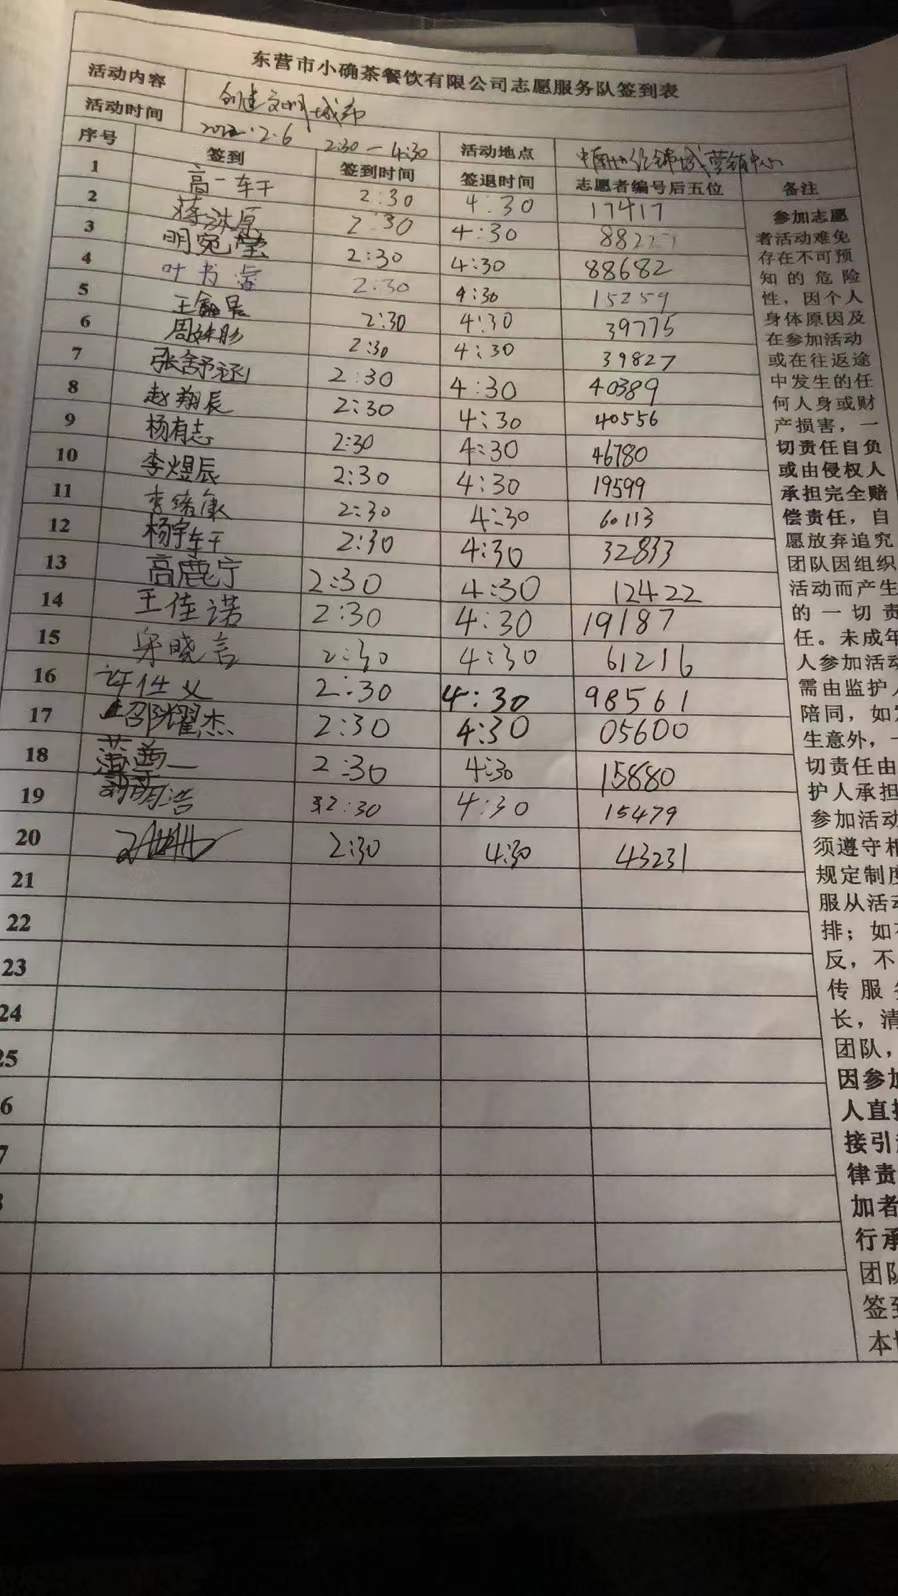 东营市小确茶餐饮有限公司志愿服务队签到表
活动内容 创建文明城市
活动时间 2022.2.6 2:30-4:30 活动地点 营销中心
序号 签到 签到时间 签退时间 志愿者编号后五位 备注
1 高一轩 2:30 4:30 17417
2 2:30 4:30
3 明宛莹 2:30 4:30 88682
4 叶书睿 2:30 4:30 15259
5 2:30 4:30 39775
6 2:30 4:30 39827
7 张舒涵 2:30 4:30 40389
8 赵翔辰 2:30 4:30 40556
9 杨有志 2:30 4:30 46780
10 李煜辰 2:30 4:30 19599
11 2:30 4:30 60113
12 杨宇轩 2:30 4:30 32833
13 高鹿宁 2:30 4:30 12422
14 王佳诺 2:30 4:30 19187
15 晓言 2:30 4:30 61216
16 2:30 4:30 98561
17 邵耀杰 2:30 4:30 05600
18 2:30 4:30 15880
19 2:30 4:30 15479
20 2:30 4:30 43231
21
22
23
24
25
6
7
参加志愿
者活动难免
存在不可预
知的危险
性，因个人
身体原因及
在参加活动
或在往返途
中发生的任
何人身或财
产损害，一
切责任自负
或由侵权人
承担完全赔
偿责任，自
愿放弃追究
团队因组织
活动而产生
的一切责
任。未成年
人参加活动
需由监护人
陪同，如
生意外，一
切责任由
护人承担
参加活动
须遵守相
规定制度
服从活动
排；如有
反，不
传服务
长，清
团队，
因参加
人直接
接引
律责
加者
行承
团队
签到
本